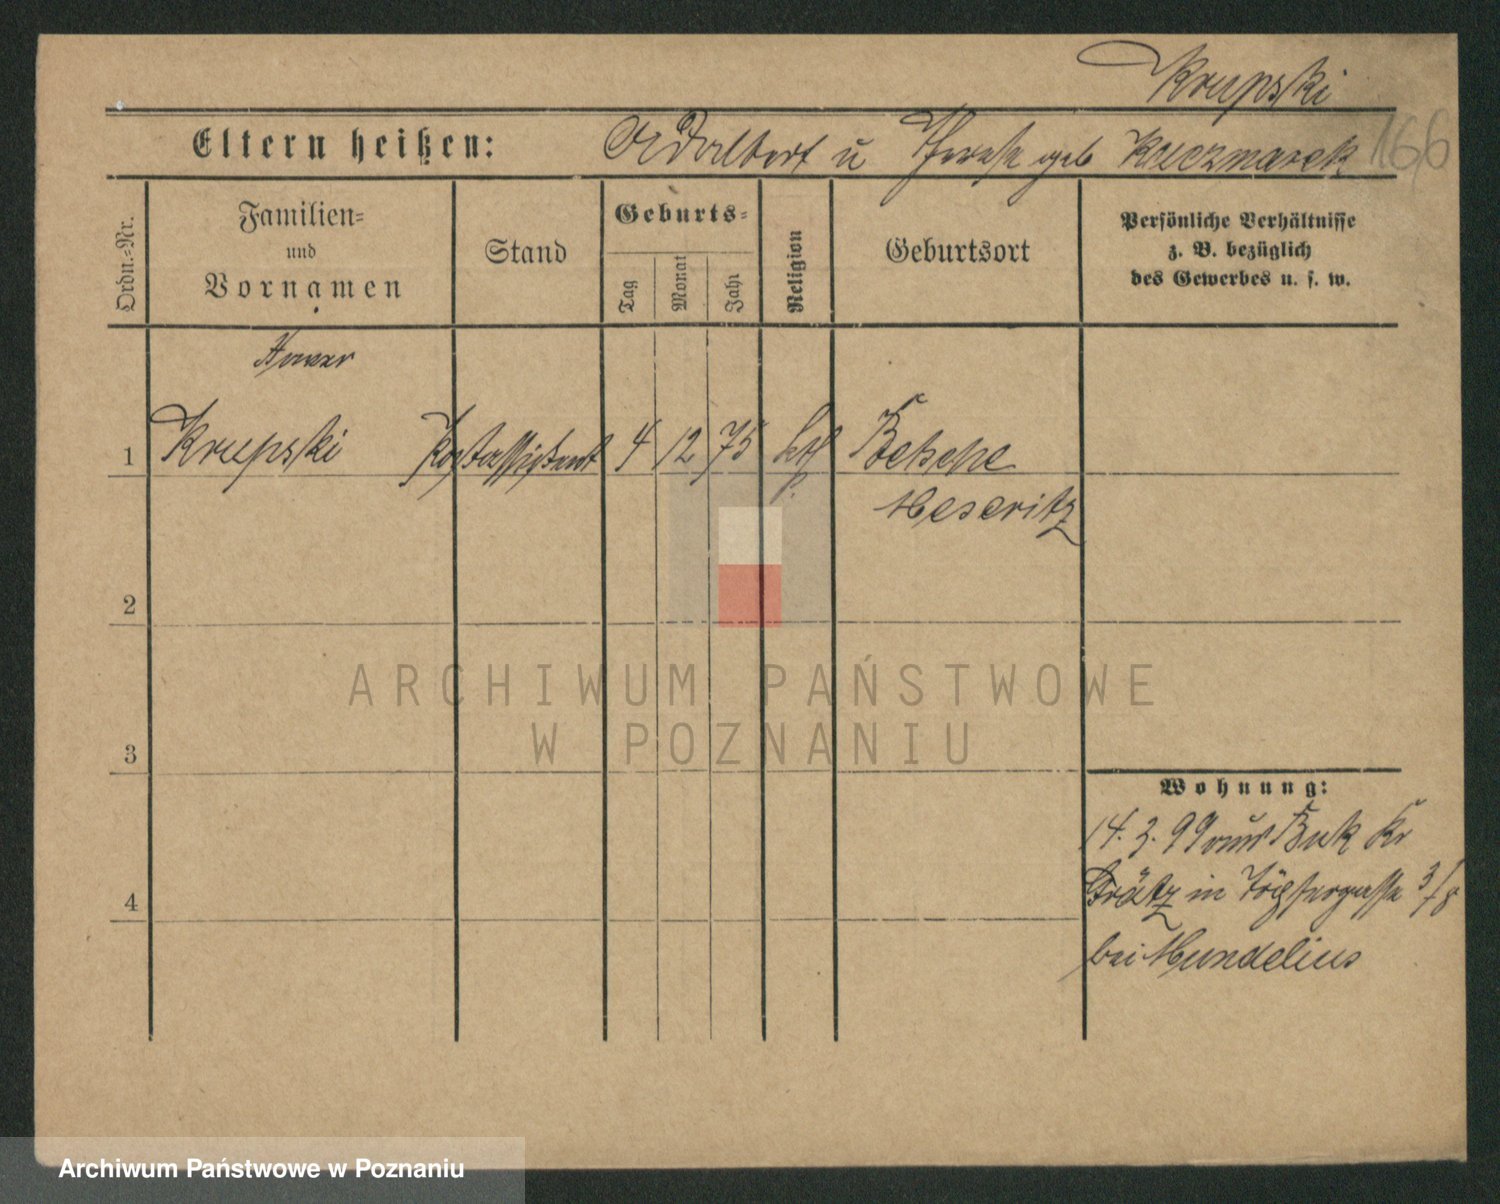 Krupski
166
Eltern heißen: Adalbert u Therese geb Kaczmarek
Ordn.-Nr.
Familien-
und
Vornamen
Stand
Geburts-
Tag
Monat
Jahr
Religion
Geburtsort
Persönliche Verhältnisse
z. B. bezüglich
des Gewerbes u. s. w.
Xaver
1 Krupski Postassistent 4 12 75 kth Betsche
Meseritz
2
3
4
ARCHIWUM PAŃSTWOWE
W POZNANIU
Wohnung:
14.3.99 aus Buk Kr
Grätz in Töpfergasse 3/8
bei Mundelius
Archiwum Państwowe w Poznaniu